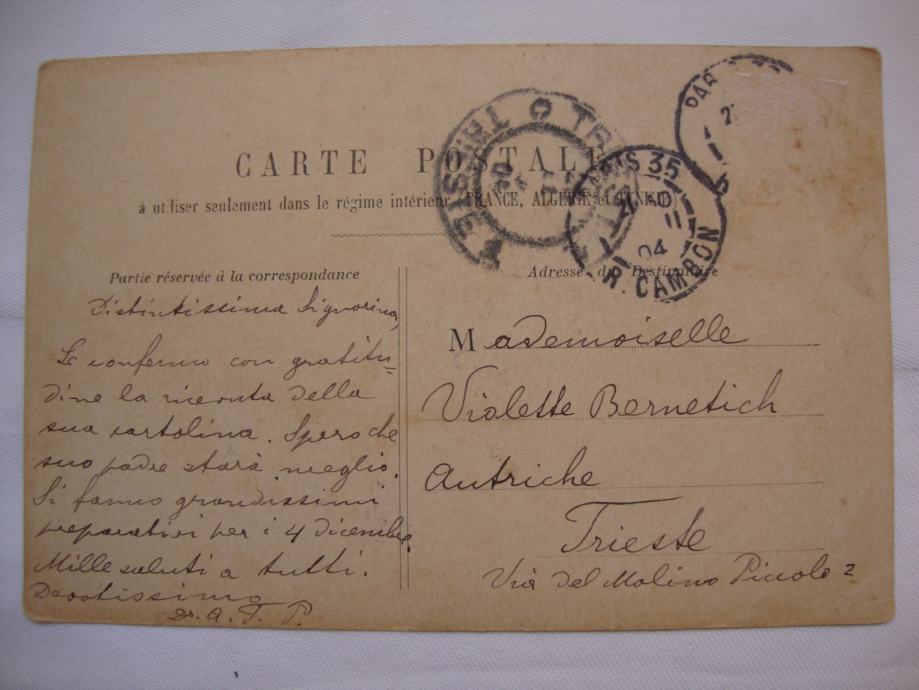 CARTE POSTALE
à utiliser seulement dans le régime intérieur (FRANCE, ALGÉRIE et TUNISIE)
TRIESTE TRIEST
PARIS 35
11
04
R. CAMBON
PAR
Partie réservée à la correspondance
Distintissima Signorina,
Le confermo con gratitu=
dine la ricevuta della
sua cartolina. Spero che
suo padre starà meglio.
Si fanno grandissimi
preparativi per i 4 dicembre.
Mille saluti a tutti.
Devotissimo
Dr. A. T. P.
Adresse du Destinataire
Mademoiselle
Violette Bernetich
Autriche
Trieste
Via del Molino Piccolo 2